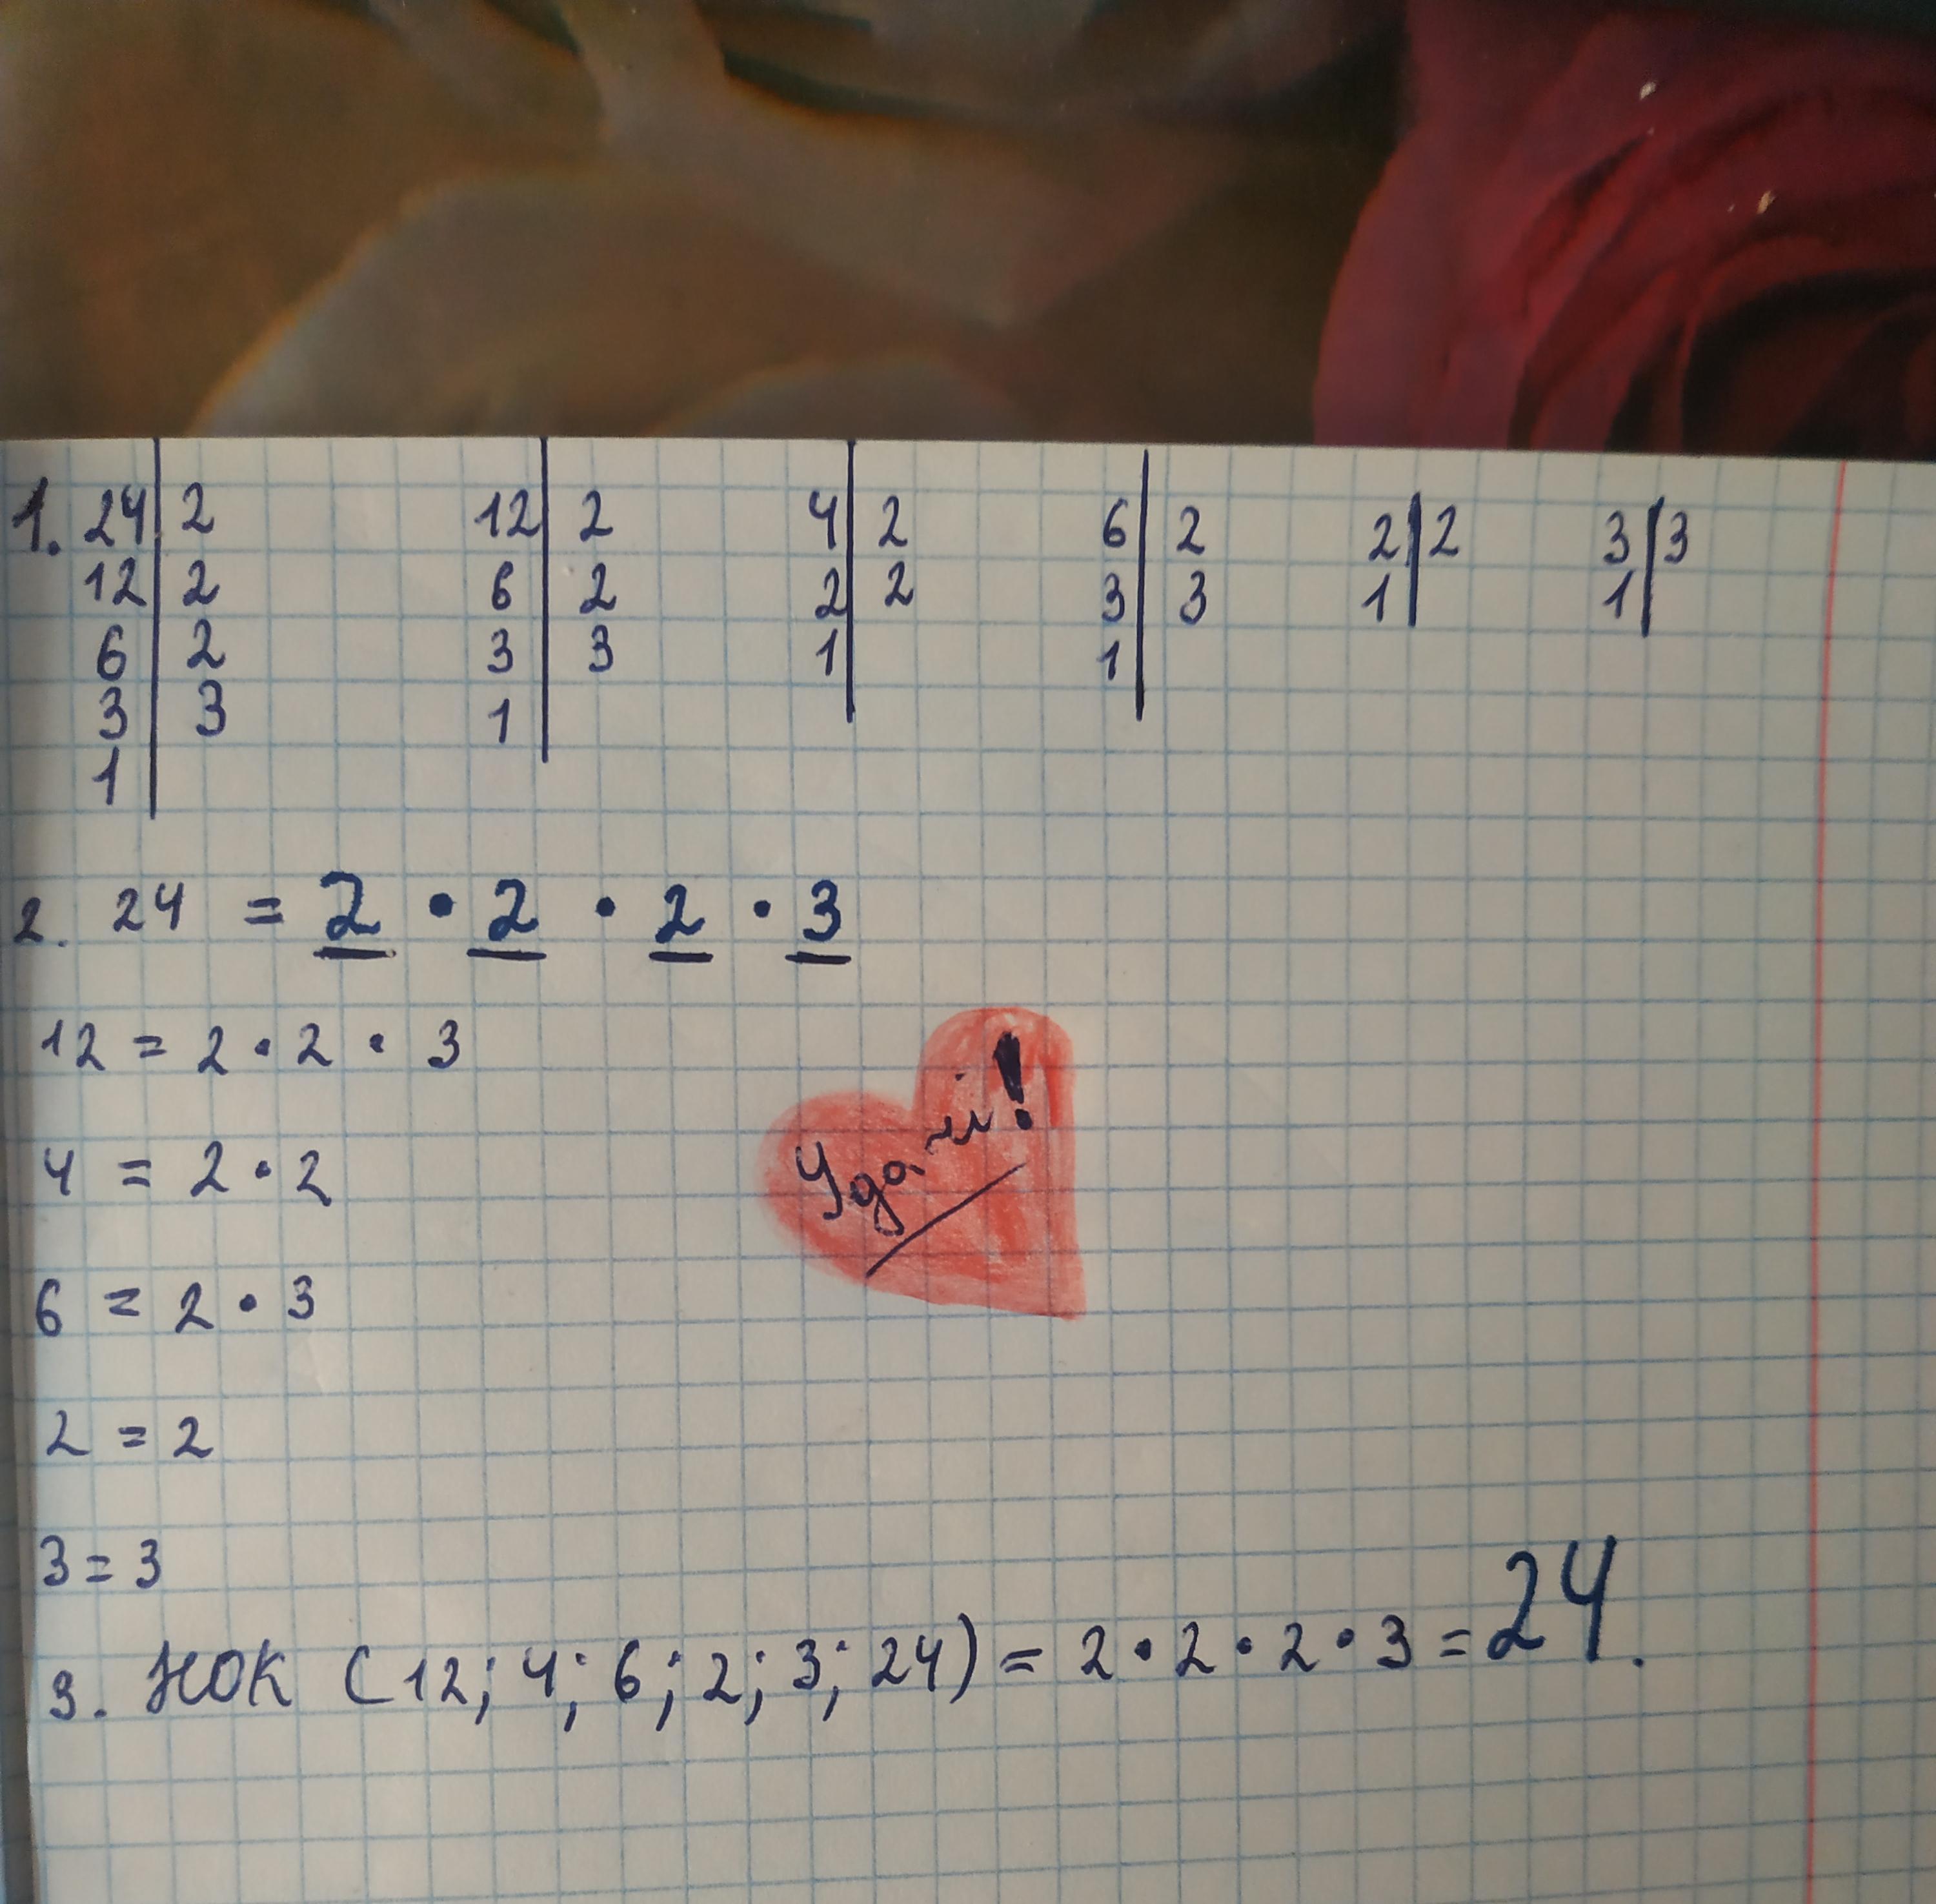 1. 24 | 2 12 | 2 4 | 2 6 | 2 2 | 2 3 | 3
12 | 2 6 | 2 2 | 2 3 | 3 1 | 1 |
6 | 2 3 | 3 1 | 1 |
3 | 3 1 |
1 |
2. 24 = 2 • 2 • 2 • 3
12 = 2 • 2 • 3
4 = 2 • 2
6 = 2 • 3
2 = 2
3 = 3
Удачи!
3. НОК (12; 4; 6; 2; 3; 24) = 2 • 2 • 2 • 3 = 24.